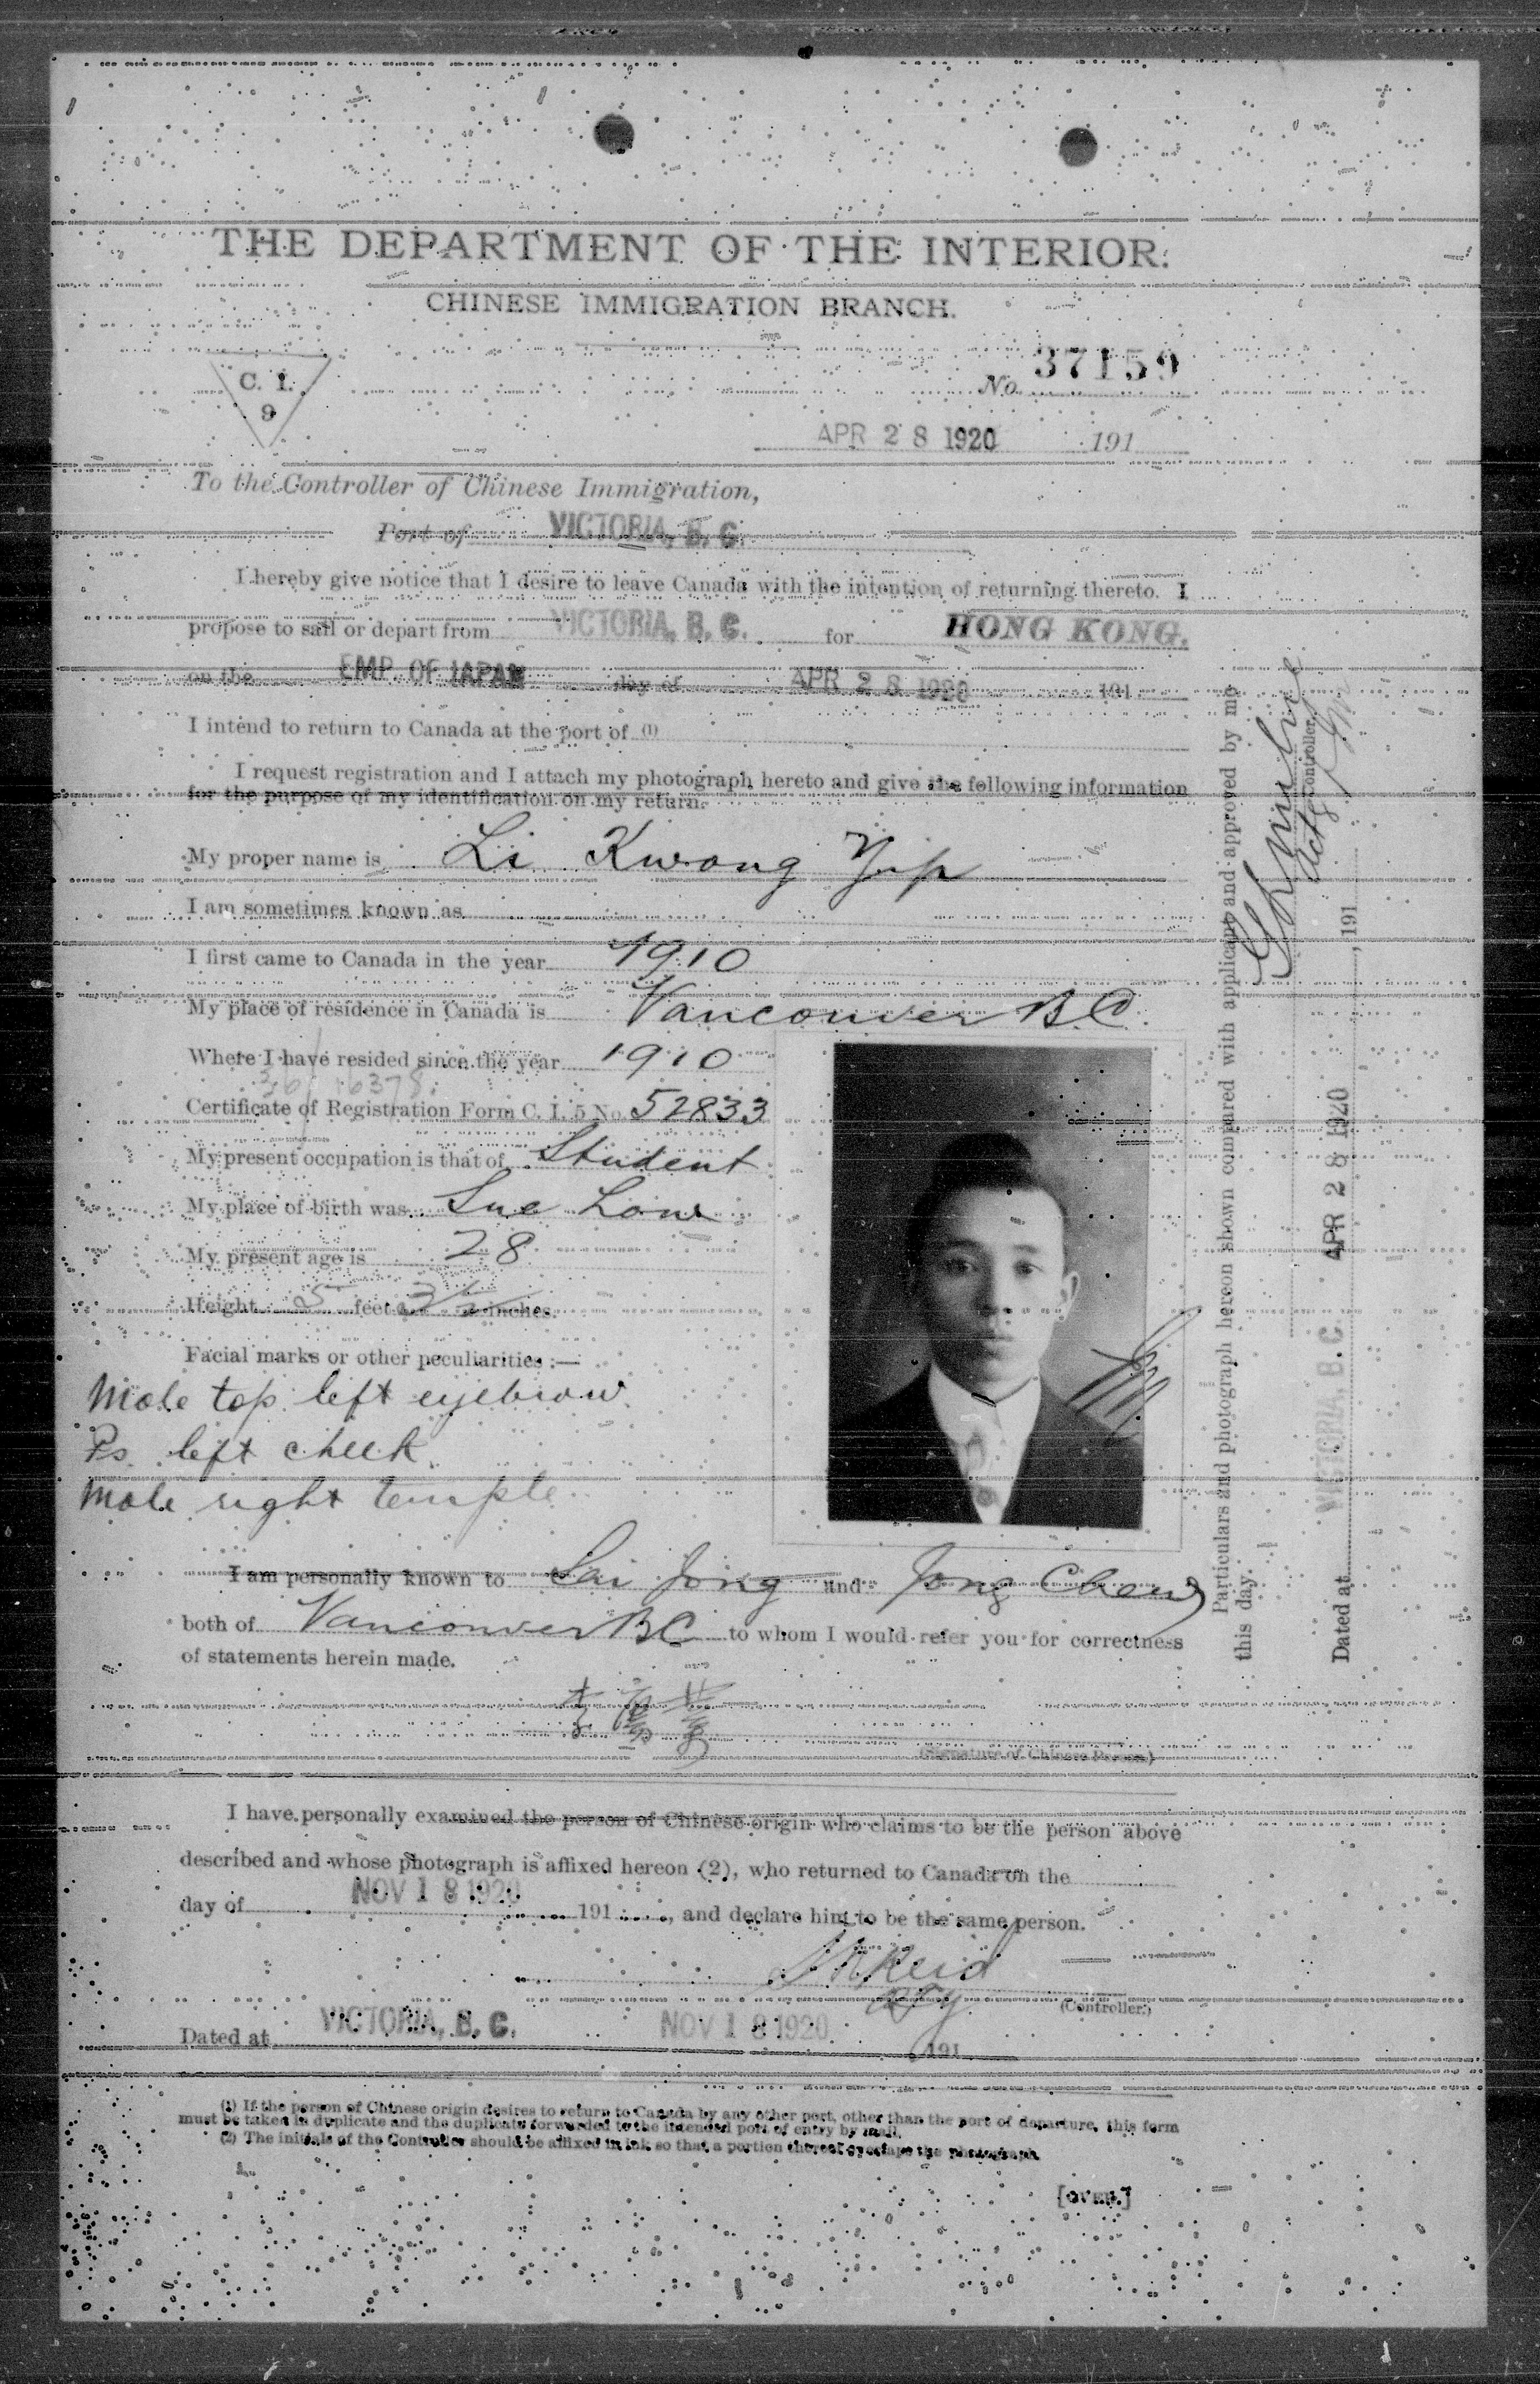 THE DEPARTMENT OF THE INTERIOR.
CHINESE IMMIGRATION BRANCH.
C. I.
9
No. 37159
APR 28 1920 191
To the Controller of Chinese Immigration,
Port of VICTORIA, B. C.
I hereby give notice that I desire to leave Canada with the intention of returning thereto. I
propose to sail or depart from VICTORIA, B. C. for HONG KONG.
on the EMP. OF JAPAN day of APR 28 1920 191
I intend to return to Canada at the port of (1)
I request registration and I attach my photograph hereto and give the following information
for the purpose of my identification on my return.
My proper name is Li Kwong Yip
I am sometimes known as
I first came to Canada in the year 1910
My place of residence in Canada is Vancouver BC
Where I have resided since the year 1910
Certificate of Registration Form C. I. 5 No. 52833
My present occupation is that of Student
My place of birth was Sue Low
My present age is 28
Height 5 feet 3½ inches.
Facial marks or other peculiarities :—
Mole top left eyebrow
Ps left cheek
Mole right temple
I am personally known to Lai Jong and Jong Chew
both of Vancouver BC to whom I would refer you for correctness
of statements herein made.
(Signature of Chinese Person)
I have personally examined the person of Chinese origin who claims to be the person above
described and whose photograph is affixed hereon (2), who returned to Canada on the
day of NOV 18 1920 191 , and declare him to be the same person.
Reid
(Controller)
Dated at VICTORIA, B. C. NOV 18 1920 191
(1) If the person of Chinese origin desires to return to Canada by any other port, other than the port of departure, this form
must be taken in duplicate and the duplicate forwarded to the intended port of entry by mail.
(2) The initials of the Controller should be affixed in ink so that a portion thereof overlaps the photograph.
[OVER.]
Particulars and photograph hereon shown compared with applicant and approved by me
this day.
Actg Controller.
Dated at VICTORIA, B. C. APR 28 1920 , 191